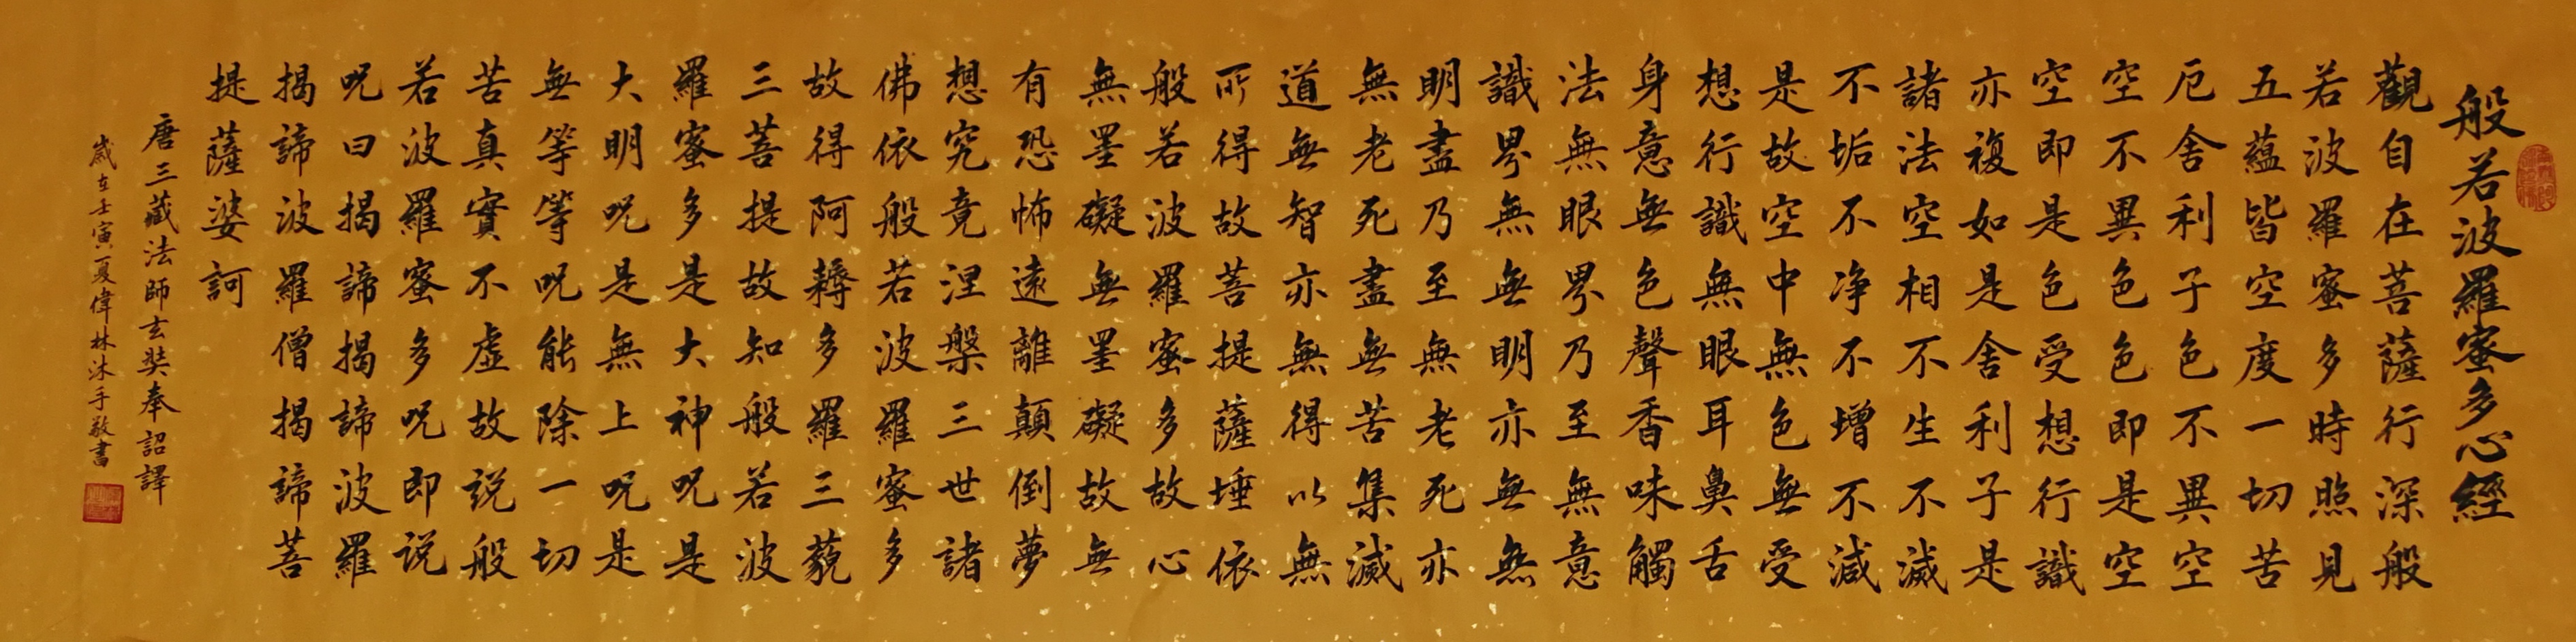 般若波羅蜜多心經
觀自在菩薩行深般
若波羅蜜多時照見
五蘊皆空度一切苦
厄舍利子色不異空
空不異色色即是空
空即是色受想行識
亦複如是舍利子是
諸法空相不生不滅
不垢不净不增不減
是故空中無色無受
想行識無眼耳鼻舌
身意無色聲香味觸
法無眼界乃至無意
識界無無明亦無無
明盡乃至無老死亦
無老死盡無苦集滅
道無智亦無得以無
所得故菩提薩埵依
般若波羅蜜多故心
無罣礙無罣礙故無
有恐怖遠離顛倒夢
想究竟涅槃三世諸
佛依般若波羅蜜多
故得阿耨多羅三藐
三菩提故知般若波
羅蜜多是大神呪是
大明呪是無上呪是
無等等呪能除一切
苦真實不虛故説般
若波羅蜜多呪即説
呪曰揭諦揭諦波羅
揭諦波羅僧揭諦菩
提薩婆訶
唐三藏法師玄奘奉詔譯
歲在壬寅夏偉林沐手敬書